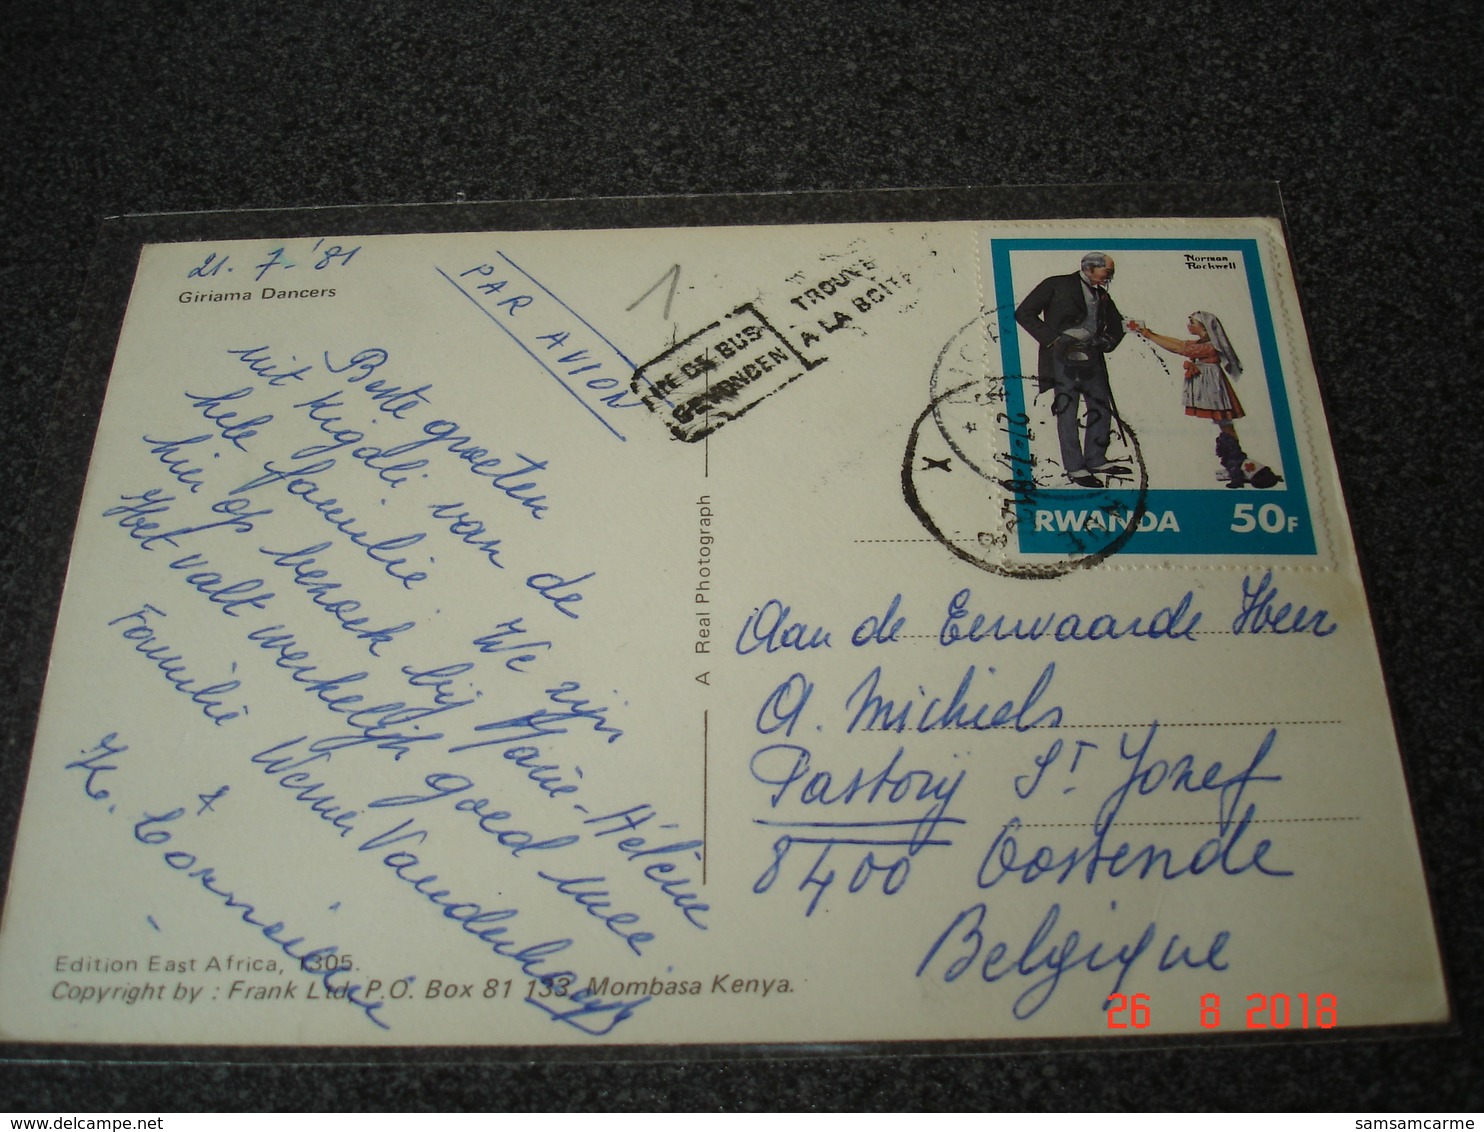 21. 7. '81
Giriama Dancers
PAR AVION
1
IN DE BUS
GEVONDEN
TROUVE
A LA BOITE
Norman
Rockwell
RWANDA 50F
Beste groeten
uit Kigali van de
hele familie. We zijn
hier op bezoek bij Marie-Hélène
Het valt werkelijk goed mee
Familie Werner Vandenhaeft
&
A Real Photograph
Aan de Eerwaarde Heer
A. Michiels
Pastorij St Jozef
8400 Oostende
Belgique
Edition East Africa, 1305.
Copyright by : Frank Ltd. P.O. Box 81 133, Mombasa Kenya.
26 8 2018
samsamcarme